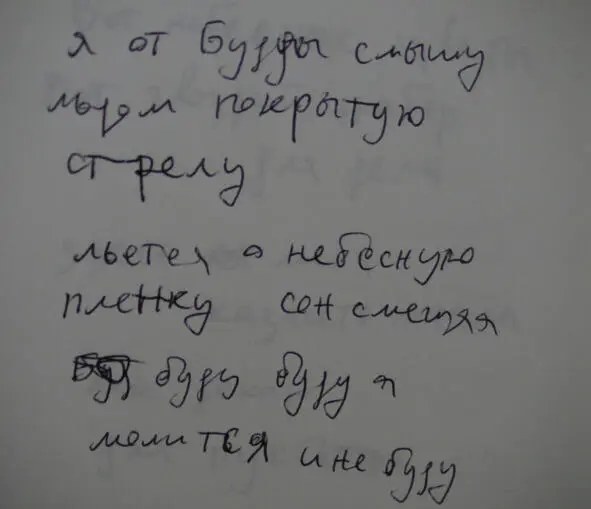 я от Будды слышу
льдом покрытую
стрелу
льется о небесную
пленку сон смещяя
буду буду я
молится и не буду